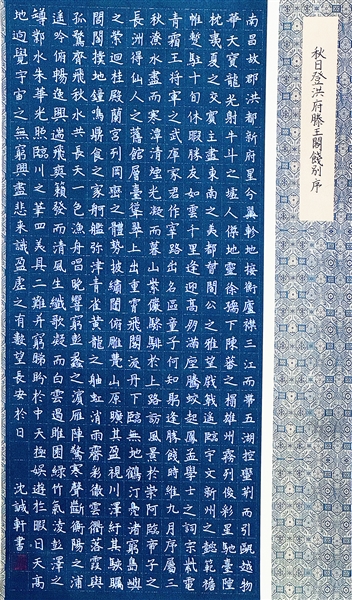 秋日登洪府滕王閣餞別序
南昌故郡洪都新府星分翼軫地接衡廬襟三江而帶五湖控蠻荊而引甌越物
華天寶龍光射牛斗之墟人傑地靈徐孺下陳蕃之榻雄州霧列俊彩星馳臺隍
枕夷夏之交賓主盡東南之美都督閻公之雅望棨戟遙臨宇文新州之懿範襜
帷暫駐十旬休暇勝友如雲千里逢迎高朋滿座騰蛟起鳳孟學士之詞宗紫電
青霜王將軍之武庫家君作宰路出名區童子何知躬逢勝餞時維九月序屬三
秋潦水盡而寒潭清煙光凝而暮山紫儼驂騑於上路訪風景於崇阿臨帝子之
長洲得仙人之舊館層臺聳翠上出重霄飛閣流丹下臨無地鶴汀鳧渚窮島嶼
之縈迴桂殿蘭宮列岡巒之體勢披繡闥俯雕甍山原曠其盈視川澤紆其駭矚
閭閻撲地鐘鳴鼎食之家舸艦彌津青雀黃龍之舳虹消雨霽彩徹雲衢落霞與
孤鶩齊飛秋水共長天一色漁舟唱晚響窮彭蠡之濱雁陣驚寒聲斷衡陽之浦
遙吟俯暢逸興遄飛爽籟發而清風生纖歌凝而白雲遏睢園綠竹氣凌彭澤之
樽鄴水朱華光照臨川之筆四美具二難并窮睇眄於中天極娛遊於暇日天高
地迥覺宇宙之無窮興盡悲來識盈虛之有數望長安於日 沈誠軒書